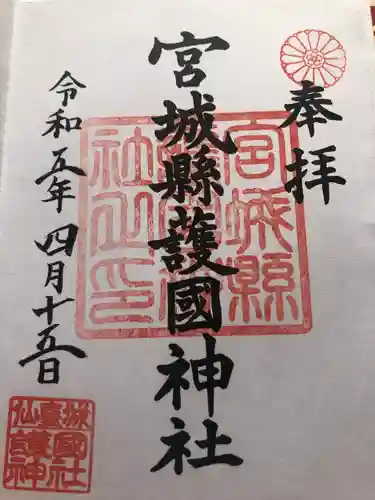 奉拝
宮城縣護國神社
令和五年四月十五日
宮城縣
護國神
社之印
仙臺城
護國
神社